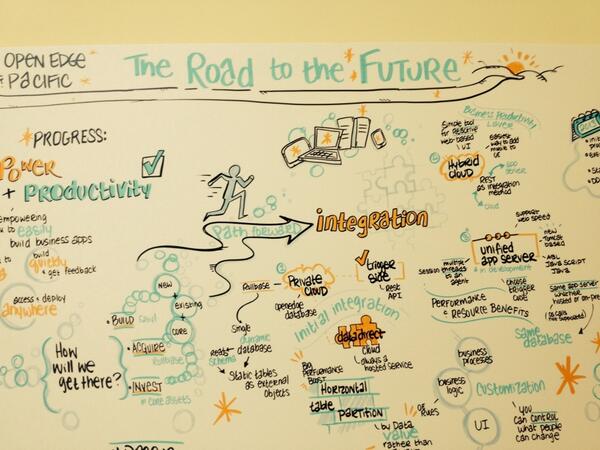 OPEN EDGE
PACIFIC
The Road to the Future
*PROGRESS:
POWER
+ PRODUCTIVITY
empowering
to easily
build business apps
build
quickly
& get feedback
access + deploy
anywhere
How
will we
get there?
• BUILD
• ACQUIRE
Rollbase
• INVEST
in core assets
new
existing
core
Path forward
integration
Rollbase
Private
CLOUD
openedge
database
trigger
side
Rest
API
Single
dynamic
database
Read
Schema
Static tables
as external
objects
initial integration
data direct
Cloud
always a
hosted service
Big
Performance
Boost
Horizontal
table PARTITION
by Data
value
rather than
Business Productivity
Simple tool
web-based
UI
easiest
way to add
mobile to
UI
Hybrid
CLOUD
REST
as integration
method
cloud
support
web speed
unified
app server
in development
multiple
threads on
an
agent
session
new
based
ABL
Java Script
Java
choose
trigger
code
PERFORMANCE
& RESOURCE BENEFITS
Same app server
whether
hosted or on-pre
Same
database
business
processes
business
logic
UI
customization
you
can control
what people
can change